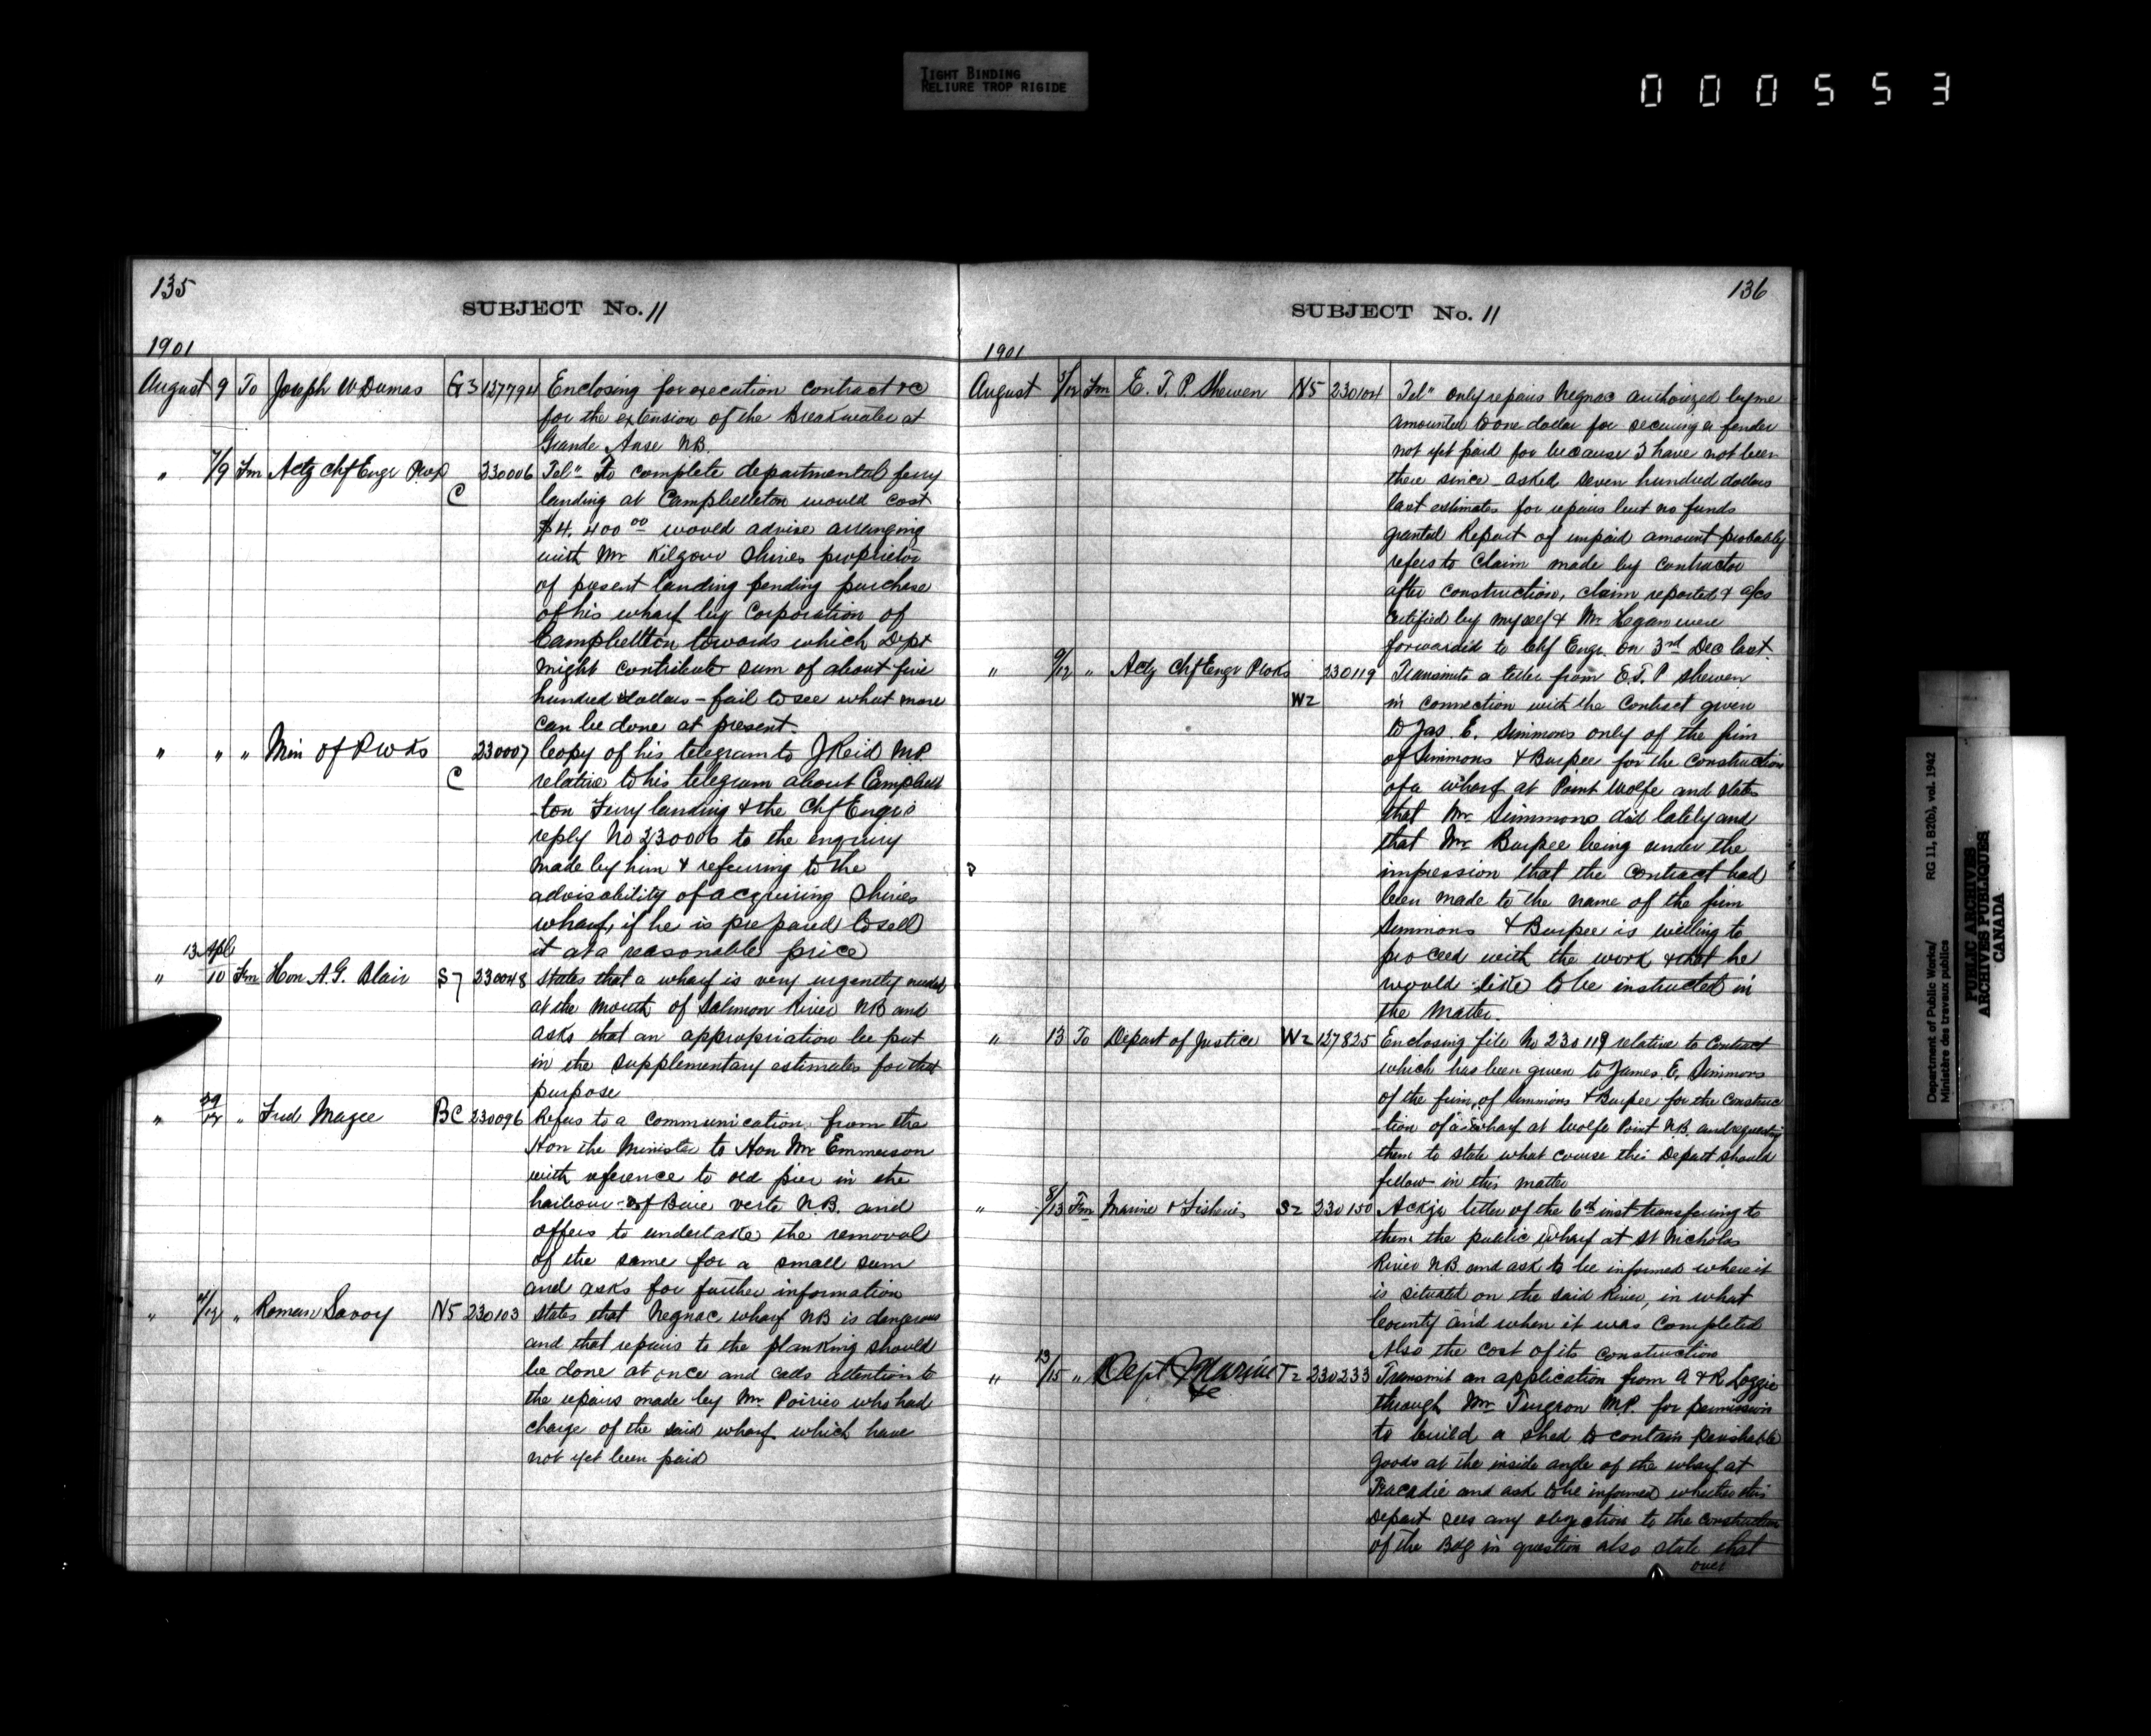 TIGHT BINDING
RELIURE TROP RIGIDE
000553
135
SUBJECT No. 11
1901
August 9 To Joseph W Dumas G3 127794 Enclosing for execution contract &c
for the extension of the Breakwater at
Grande Anse NB.
" 7/9 Fm Actg Chf Engr Pwks C 230006 Tel" To complete departmental ferry
landing at Campbellton would cost
$4,400 00 would advise arranging
with Mr Kilgour Shives proprietor
of present landing pending purchase
of his wharf by Corporation of
Campbellton towards which Dept
might contribute sum of about five
hundred dollars - fail to see what more
can be done at present.
" " " Min of P wks C 230007 Copy of his telegram to J Reid M.P.
relative to his telegram about Campbell
-ton Ferry landing & the Chf Engr's
reply No 230006 to the enquiry
made by him & referring to the
advisability of acquiring Shives
wharf, if he is prepared to sell
it at a reasonable price
" 13 Apl/10 Fm Hon A.G. Blair S7 230048 States that a wharf is very urgently needed
at the mouth of Salmon River NB and
asks that an appropriation be put
in the supplementary estimates for that
purpose
" 29/12 " Fred Magee BC 230096 Refers to a communication from the
Hon the Minister to Hon Mr Emmerson
with reference to old pier in the
harbour of Baie verte N.B. and
offers to undertake the removal
of the same for a small sum
and asks for further information
" /12 " Romain Savoy N5 230103 States that Negnac wharf NB is dangerous
and that repairs to the planking should
be done at once and calls attention to
the repairs made by Mr Poirier who had
charge of the said wharf which have
not yet been paid
136
SUBJECT No. 11
1901
August /12 Fm E. T. P. Shewen N5 230104 Tel" only repairs Negnac authorized by me
amounted to one dollar for securing a fender
not yet paid for because I have not been
there since asked seven hundred dollars
last estimates for repairs but no funds
granted Report of unpaid amount probably
refers to claim made by contractor
after construction, claim reported & a/cs
certified by myself & Mr Hegan were
forwarded to Chf Engr on 3rd Dec last.
" 9/12 " Actg Chf Engr Pwks W2 230119 Transmits a letter from E.T.P Shewen
in connection with the Contract given
to Jas. E. Simmons only of the firm
of Simmons & Burpee for the construction
of a wharf at Point Wolfe and states
that Mr. Simmons did lately and
that Mr Burpee being under the
impression that the contract had
been made to the name of the firm
Simmons & Burpee is willing to
proceed with the work & that he
would like to be instructed in
the matter.
" 13 To Depart of Justice W2 127825 Enclosing file No 230119 relative to Contract
which has been given to James E. Simmons
of the firm of Simmons & Burpee for the construc
-tion of a wharf at Wolfe Point N.B. and requesting
them to state what course this Depart should
follow in this matter
" 8/13 Fm Marine & Fisheries S2 230150 Ackge letter of the 6th inst transferring to
them the public wharf at St Nicholas
River NB and ask to be informed where it
is situated on the said River, in what
County and when it was completed
Also the cost of its construction
" 13/15 " Dept of Marine &c T2 230233 Transmit an application from A & R Loggie
through Mr Turgeon M.P. for permission
to build a shed to contain perishable
goods at the inside angle of the wharf at
Tracadie and ask to be informed whether this
Depart sees any objection to the construction
of the Bdg in question also state that
over
Department of Public Works/
Ministère des travaux publics
RG 11, B2(b), vol. 1942
PUBLIC ARCHIVES
ARCHIVES PUBLIQUES
CANADA